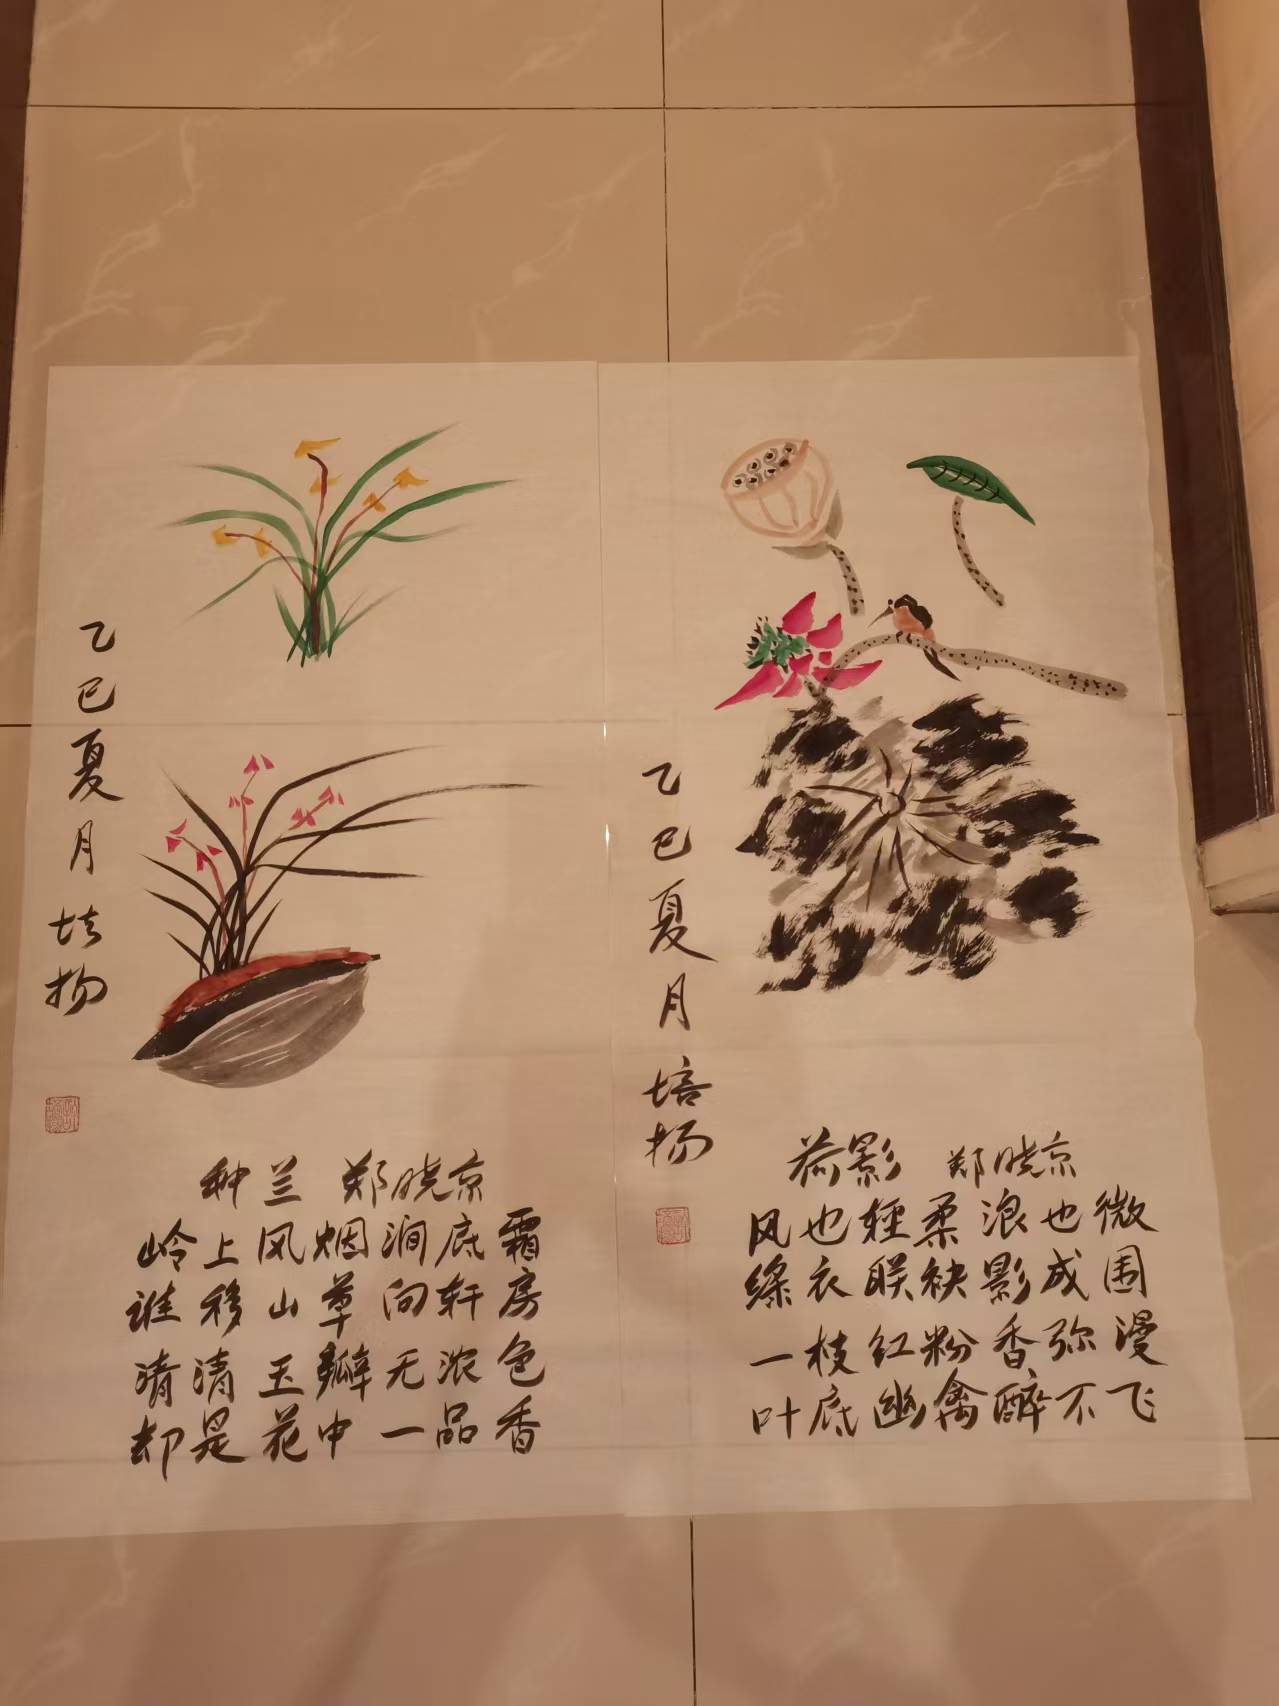 乙巳夏月培扬
种兰 郑晓京
岭上风烟涧底霜
谁移山草向轩房
清清玉瓣无浓色
却是花中一品香
乙巳夏月培扬
荷影 郑晓京
风也轻柔浪也微
绿衣联袂影成围
一枝红粉香弥漫
叶底幽禽醉不飞